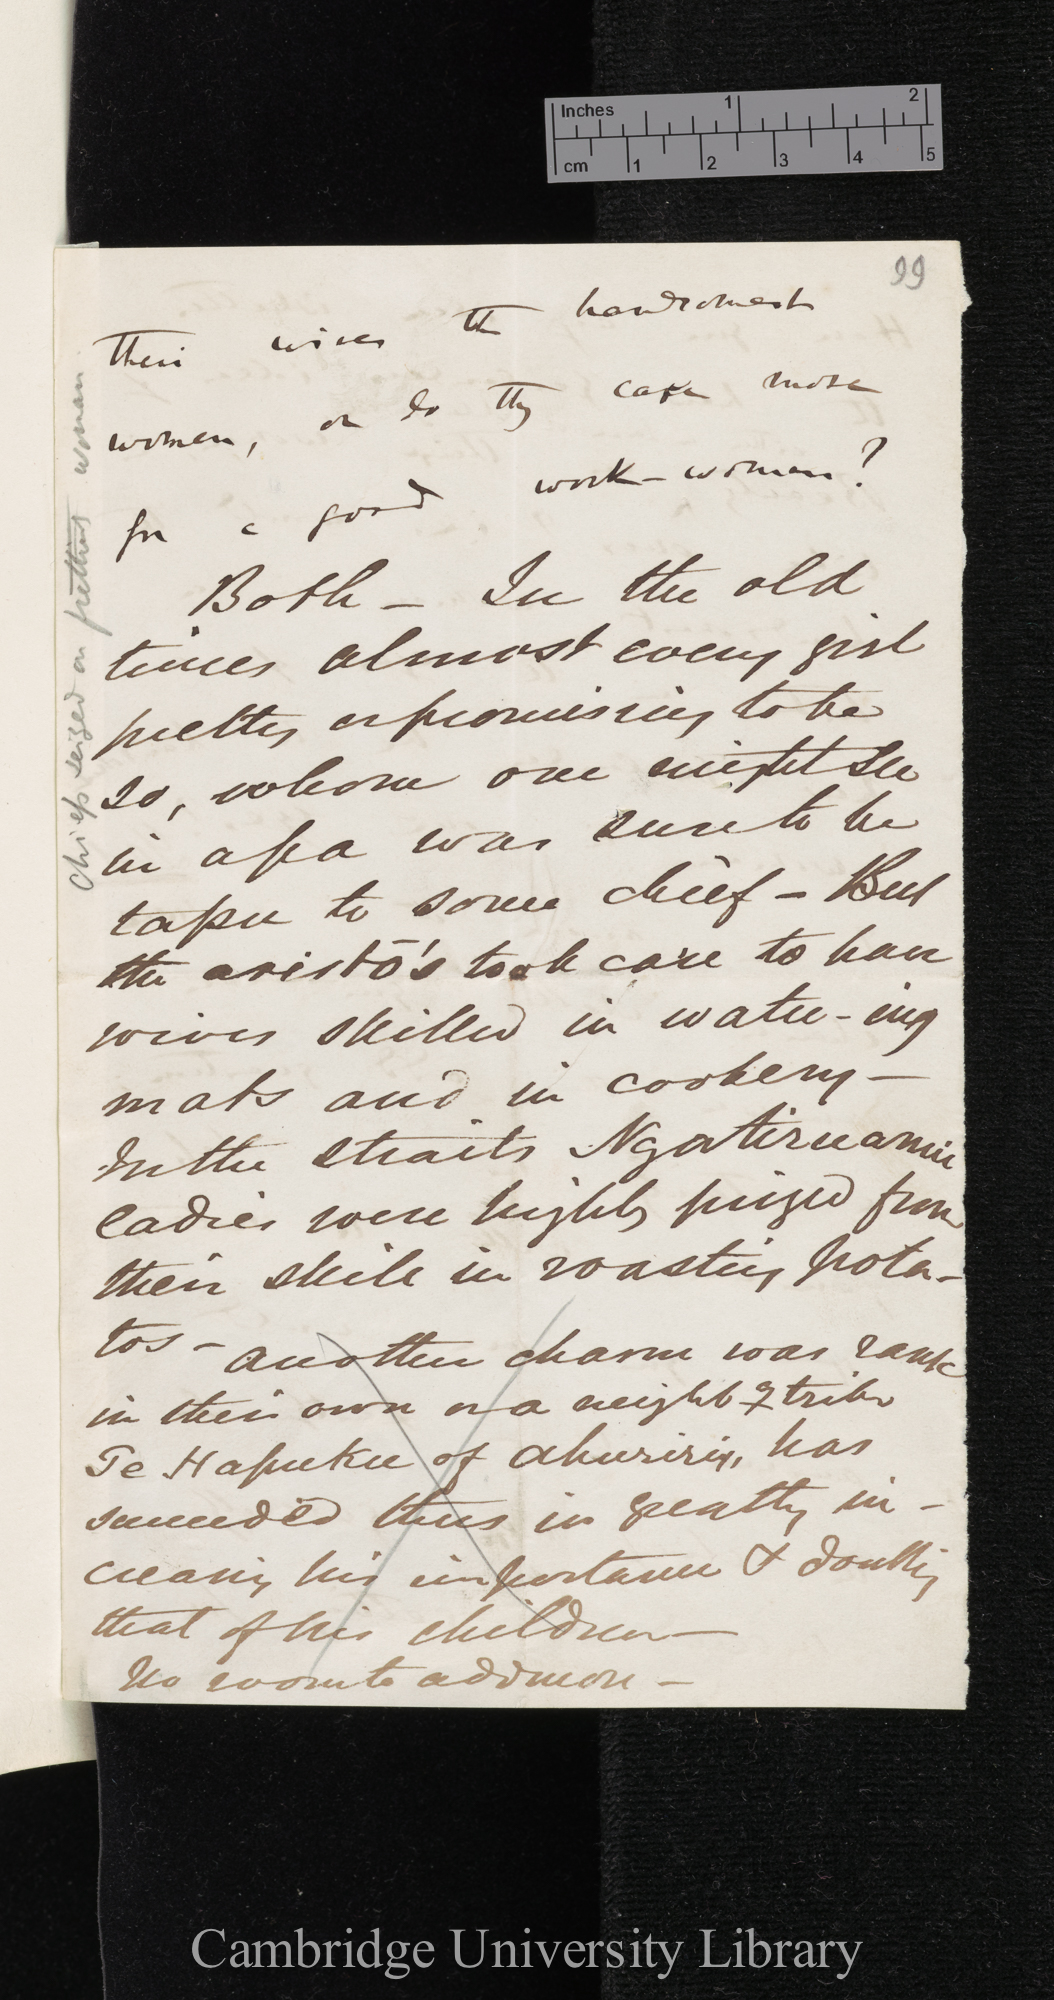 Inches 1 2
cm 1 2 3 4 5
99
their wives the handsomest
women, or do they care more
for a good work-woman?
Both — In the old
times almost every girl
pretty or promising to be
so, whom one might see
in a pa was sure to be
tapu to some chief — But
the aristō's took care to have
wives skilled in
mats and in cookery —
In the straits Ngatiruanui
ladies were highly prized from
their skill in roasting pota-
tos — another charm was rank
in their own or a neighbg tribe
Te Hapuku of Ahuriri, has
succeeded thus in greatly in-
creasing his importance & doubling
that of his children —
No room to add more —
Chiefs seized on prettiest woman
Cambridge University Library